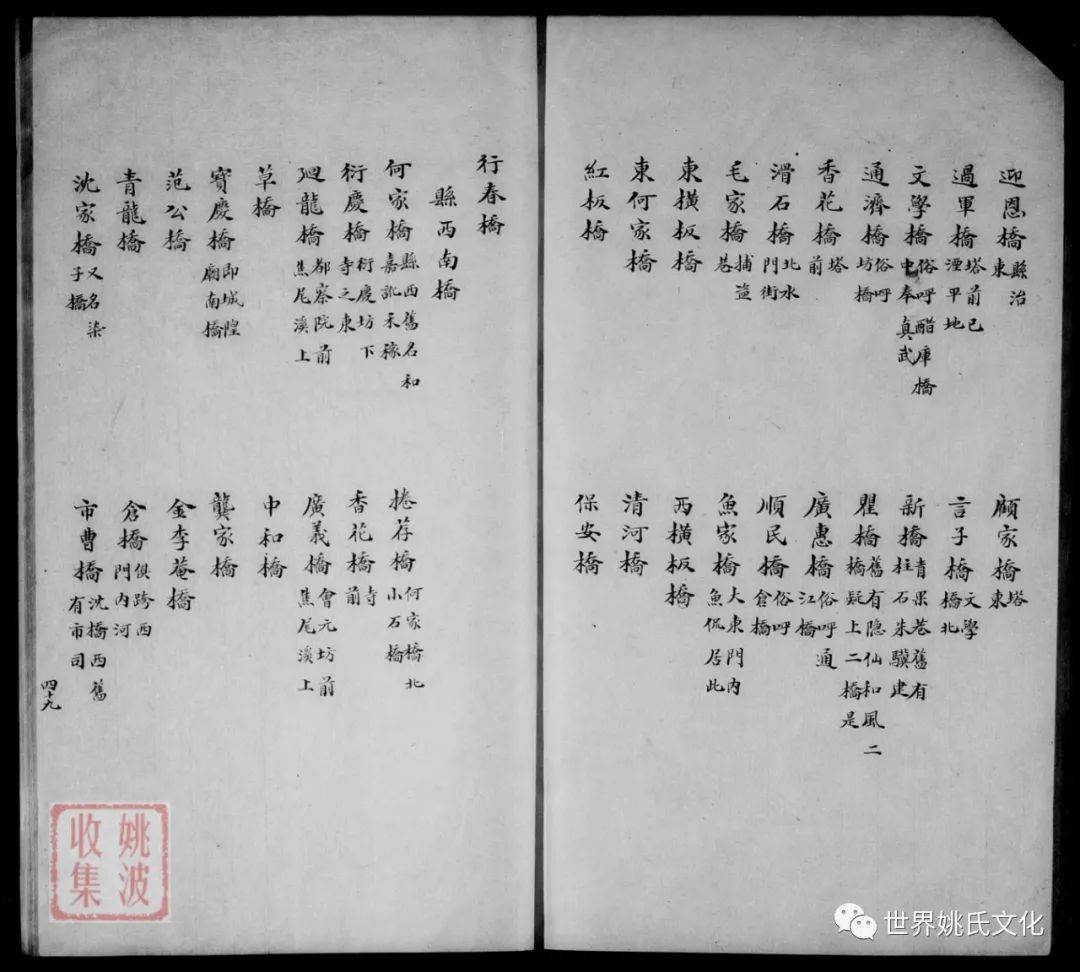 迎恩橋 縣治東 顧家橋 塔東
過軍橋 塔前已湮平地 言子橋 文學橋北
文學橋 俗呼醋庫橋中奉真武 新橋 青果巷舊有柱石朱驥建
通濟橋 俗呼坊橋 瞿橋 舊有隐仙和風二橋疑上二橋是
香花橋 塔前 廣惠橋 俗呼通江橋
滑石橋 北水門街 順民橋 俗呼倉橋
毛家橋 捕盜巷 魚家橋 大東門内魚侃居此
東橫板橋 西橫板橋
東何家橋 清河橋
紅板橋 保安橋
行春橋
縣西南橋
何家橋 縣西舊名和嘉訛禾稼 捲荐橋 何家橋北小石橋
衍慶橋 衍慶坊下寺之東 香花橋 寺前
廻龍橋 都察院前焦尾溪上 廣義橋 會元坊前焦尾溪上
草橋 中和橋
寳慶橋 即城隍廟南橋 龔家橋
范公橋 金李菴橋
青龍橋 倉橋 俱跨西門内河
沈家橋 又名柒子橋 市曹橋 沈橋西舊有市司
四十九
姚波收集
世界姚氏文化